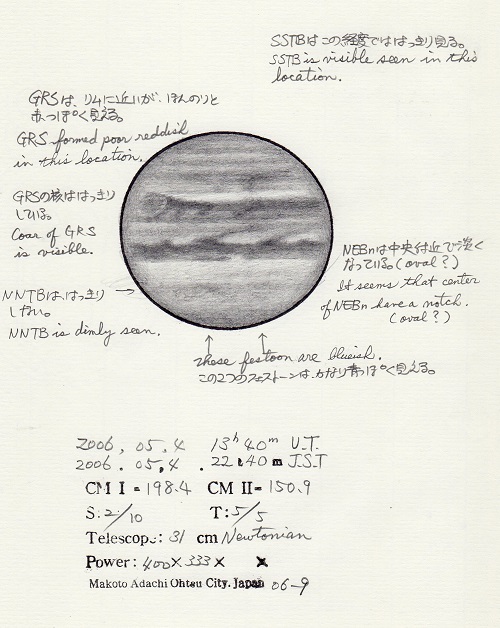 SSTBはこの経度でははっきり見る。
SSTB is visible seen in this
location.
GRSは、リムに近いが、ほんのりと
赤っぽく見える。
GRS formed poor reddish
in this location.
GRSの核ははっきり
している。
Coar of GRS
is visible.
NEBnは中央付近で淡く
なっている。(oval?)
It seems that center
of NEBn have a notch.
(oval?)
NNTBは、はっきり
しない。
NNTB is dimly seen.
These festoon are blueish.
この2つのフェストーンは、かなり青っぽく見える。
2006. 05. 4 13h 40m U.T.
2006. 05. 4 . 22h 40m J.S.T
CM I = 198.4 CM II= 150.9
S: 2/10 T: 5/5
Telescope: 31 cm Newtonian
Power: 400× 333× ×
Makoto Adachi Ohtsu City. Japan 06-9